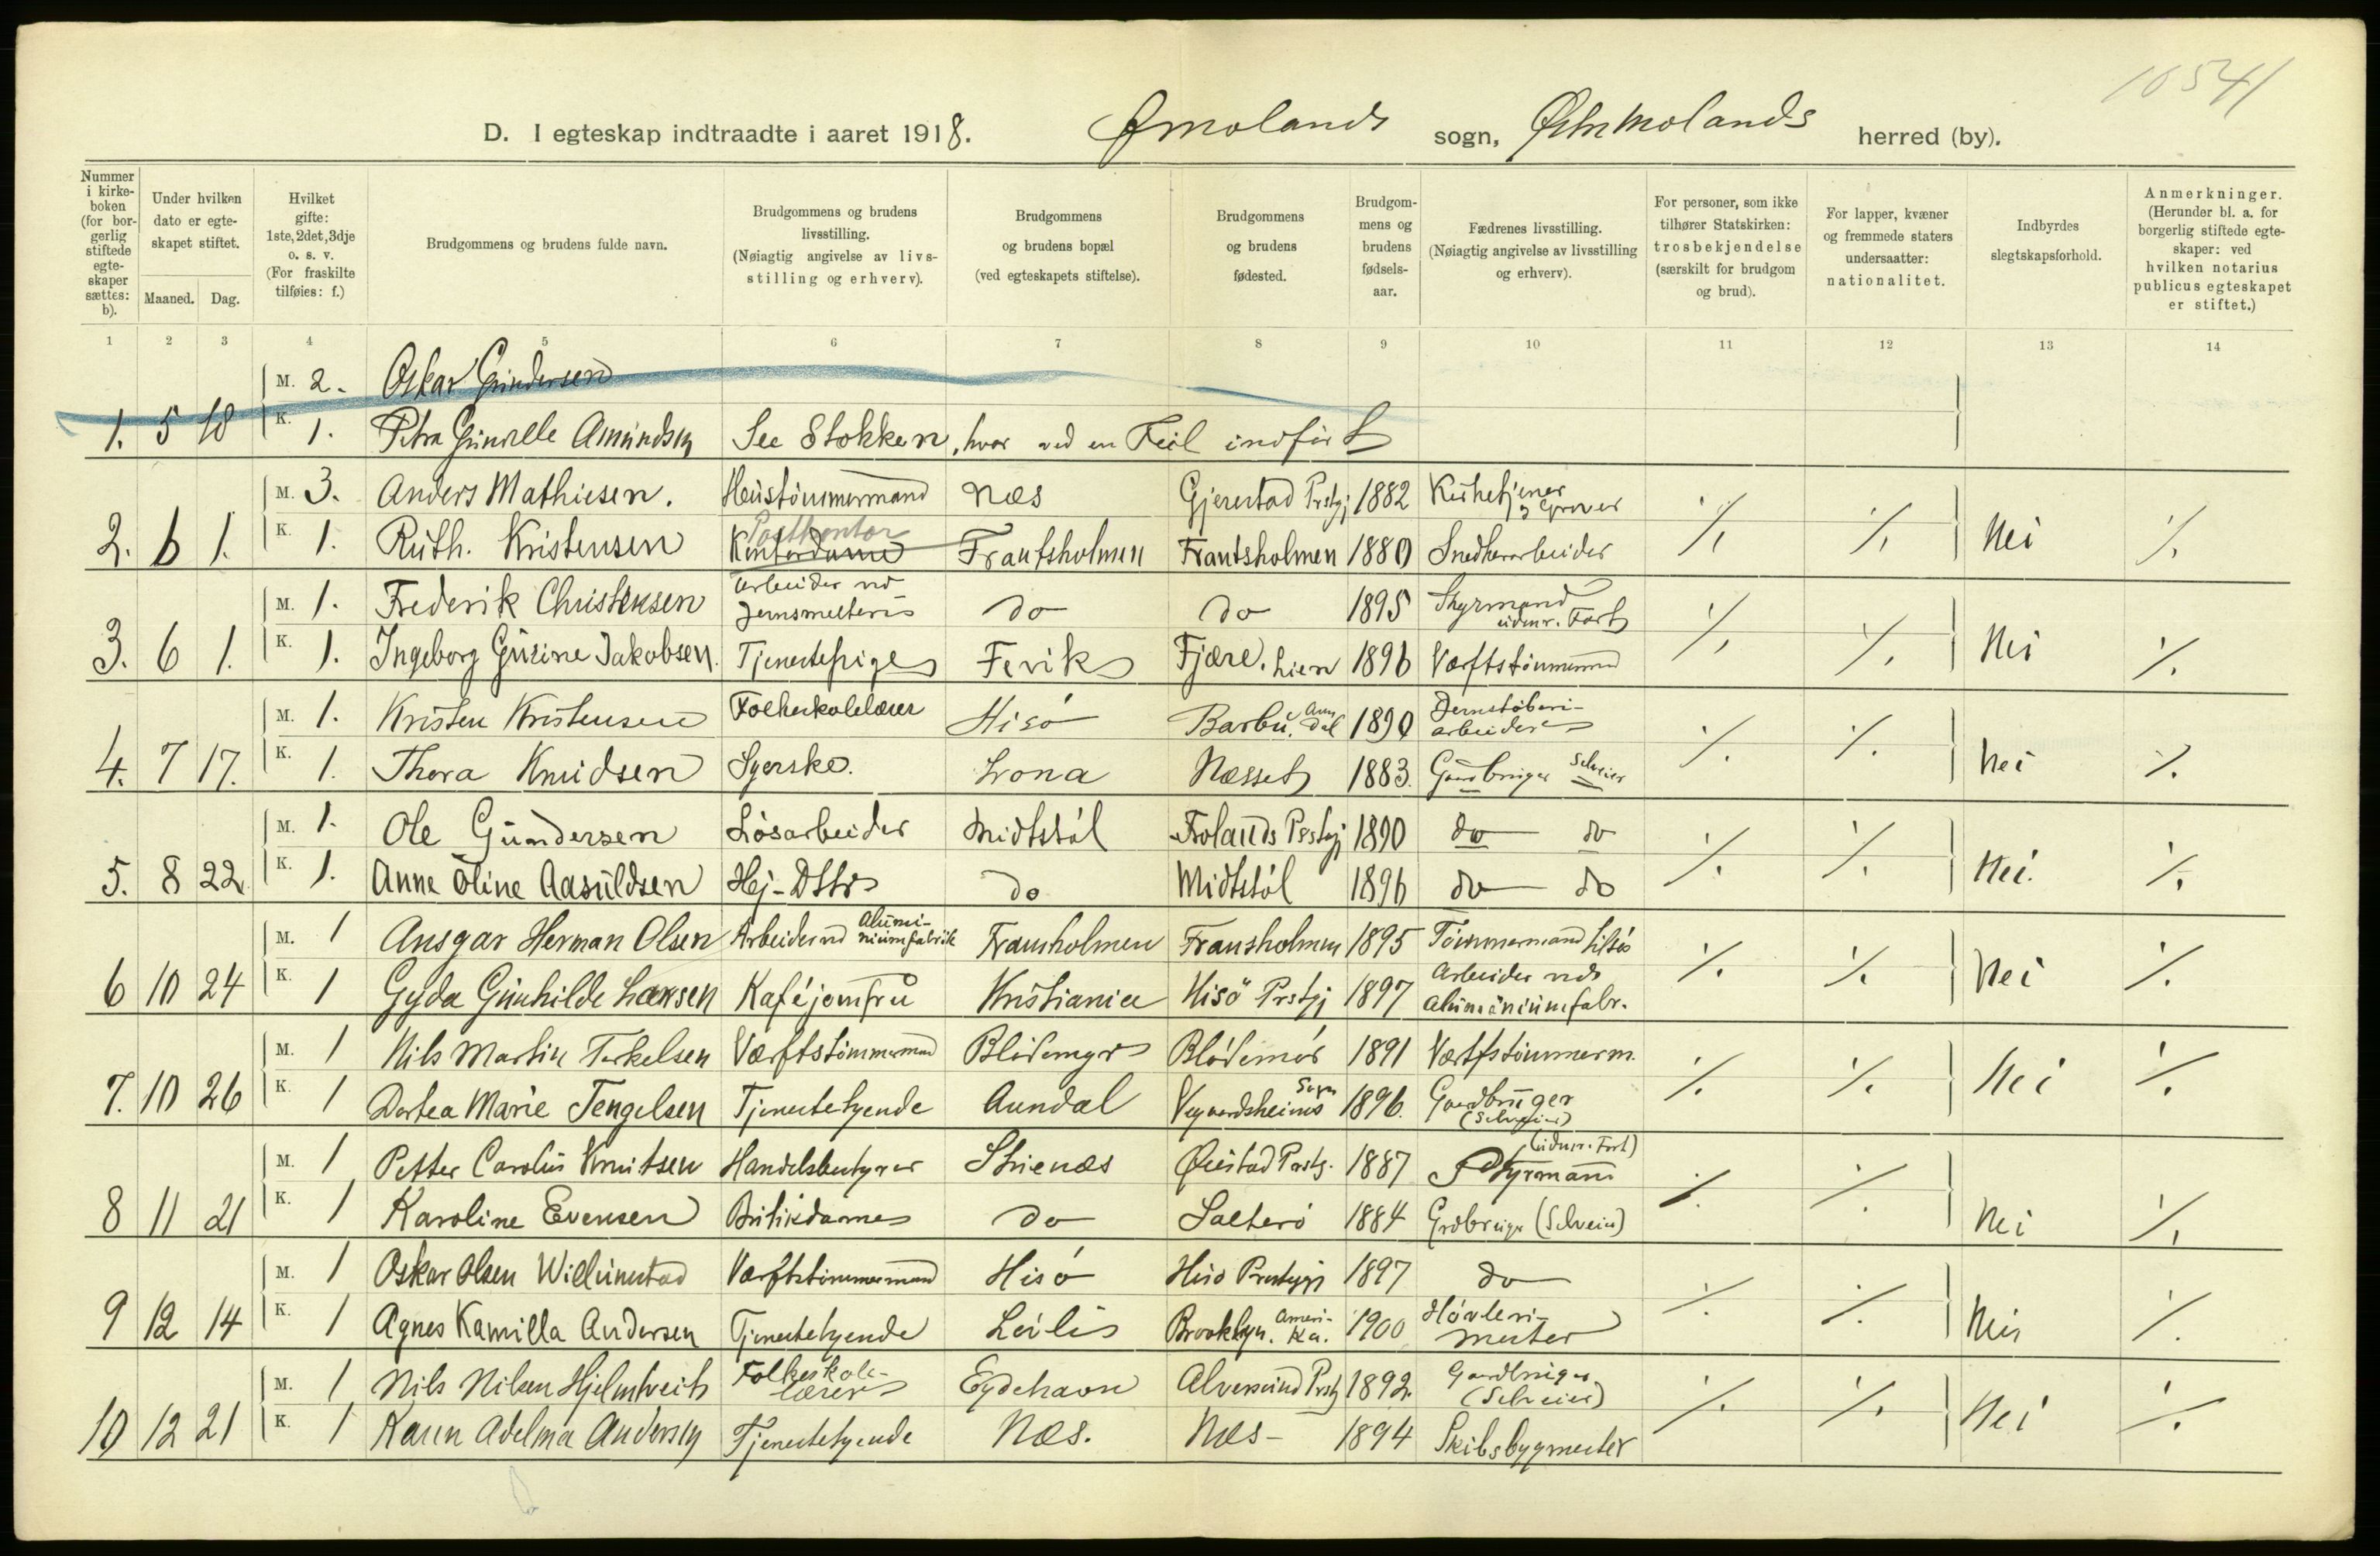 10541
D. I egteskap indtraadte i aaret 1918. Ømolands sogn, Østre Molands herred (by).
Nummer i kirke-boken (for bor-gerlig stiftede egte-skaper sættes: b).
Under hvilken dato er egte-skapet stiftet.
Maaned. Dag.
Hvilket gifte: 1ste, 2det, 3dje o. s. v. (For fraskilte tilføies: f.)
Brudgommens og brudens fulde navn.
Brudgommens og brudens livsstilling. (Nøiagtig angivelse av livs-stilling og erhverv).
Brudgommens og brudens bopæl (ved egteskapets stiftelse).
Brudgommens og brudens fødested.
Brudgom-mens og brudens fødsels-aar.
Fædrenes livsstilling. (Nøiagtig angivelse av livsstilling og erhverv).
For personer, som ikke tilhører Statskirken: trosbekjendelse (særskilt for brudgom og brud).
For lapper, kvæner og fremmede staters undersaatter: nationalitet.
Indbyrdes slegtskapsforhold.
Anmerkninger. (Herunder bl. a. for borgerlig stiftede egte-skaper: ved hvilken notarius publicus egteskapet er stiftet.)
1 2 3 4 5 6 7 8 9 10 11 12 13 14
M. 2. Oskar Gundersen
1. 5 18 K. 1. Petra Gunvalle Amundsen See Stokken, hvor ved en Feil indført
M. 3. Anders Mathiesen. Hustømmermand Næs Gjerestad Prstgj 1882 Kirketjener og Graver
2. 6 1. K. 1. Ruth. Kristensen Kontordame Postkontor Frantsholmen Frantsholmen 1880 Snedkerarbeider ./. ./. Nei ./.
M. 1. Frederik Christensen Arbeider ved Jernsmelteri do do 1895 Styrmand udenr. Fart
3. 6 1. K. 1. Ingeborg Gurine Jakobsen. Tjenestepige Fevik Fjære. Lien 1896 Værftstømmermand ./. ./. Nei ./.
M. 1. Kristen Kristensen Folkeskolelærer Hisö Barbu. Arendal 1890 Jernstøberi-arbeider
4. 7 17. K. 1. Thora Knudsen Syerske. Lona Næsset 1883. Gaardbruger Selveier ./. ./. Nei ./.
M. 1. Ole Gundersen Løsarbeider Midtstøl Frolands Prstgj 1890 do do
5. 8 22 K. 1. Anne Oline Aasuldsen Hj-Dttr do Midtstøl 1896 do do ./. ./. Nei. ./.
M. 1 Ansgar Herman Olsen Arbeider ved Alumi-niumfabrik Framholmen Fransholmen 1895 Tømmermand
6 10 24 K. 1 Gyda Gunhilde Larsen Kaféjomfru Kristiania Hisö Prstgj 1897 Arbeider ved Aluminiumfabr. ./. ./. Nei ./.
M. 1 Nils Martin Terkelsen Værftstømmermand Blødemyr Blødemyr 1891 Værftstømmerm.
7. 10 26 K. 1 Dortea Marie Tengelsen Tjenestetyende Arendal Vegaardsheiens Sogn 1896. Gaardbruger (Selveier) ./. ./. Nei ./.
M. 1 Petter Carolus Knutsen Handelsbestyrer Strienæs Øiestad Prstg. 1887 Styrmand (udenr. Fart)
8 11 21 K. 1 Karoline Evensen Butikdame do Salterö 1884 Grdbruger (Selveier) ./. ./. Nei ./.
M. 1 Oskar Olsen Willumstad Værftstømmermand Hisö Hisö Prestegj 1897 do
9 12 14 K. 1 Agnes Kamilla Andersen Tjenestetyende Brooklyn. Ameri-ka. 1900 Høvleri-mester ./. ./. Nei ./.
M. 1 Nils Nilsen Hjelmtveit Folkeskole-lærer Eydehavn Alversund Prstg 1892. Gaardbruger (Selveier)
10 12 21 K. 1 Karen Adelma Andersen Tjenestetyende Næs. Næs- 1894 Skibsbygmester ./. ./. Nei ./.